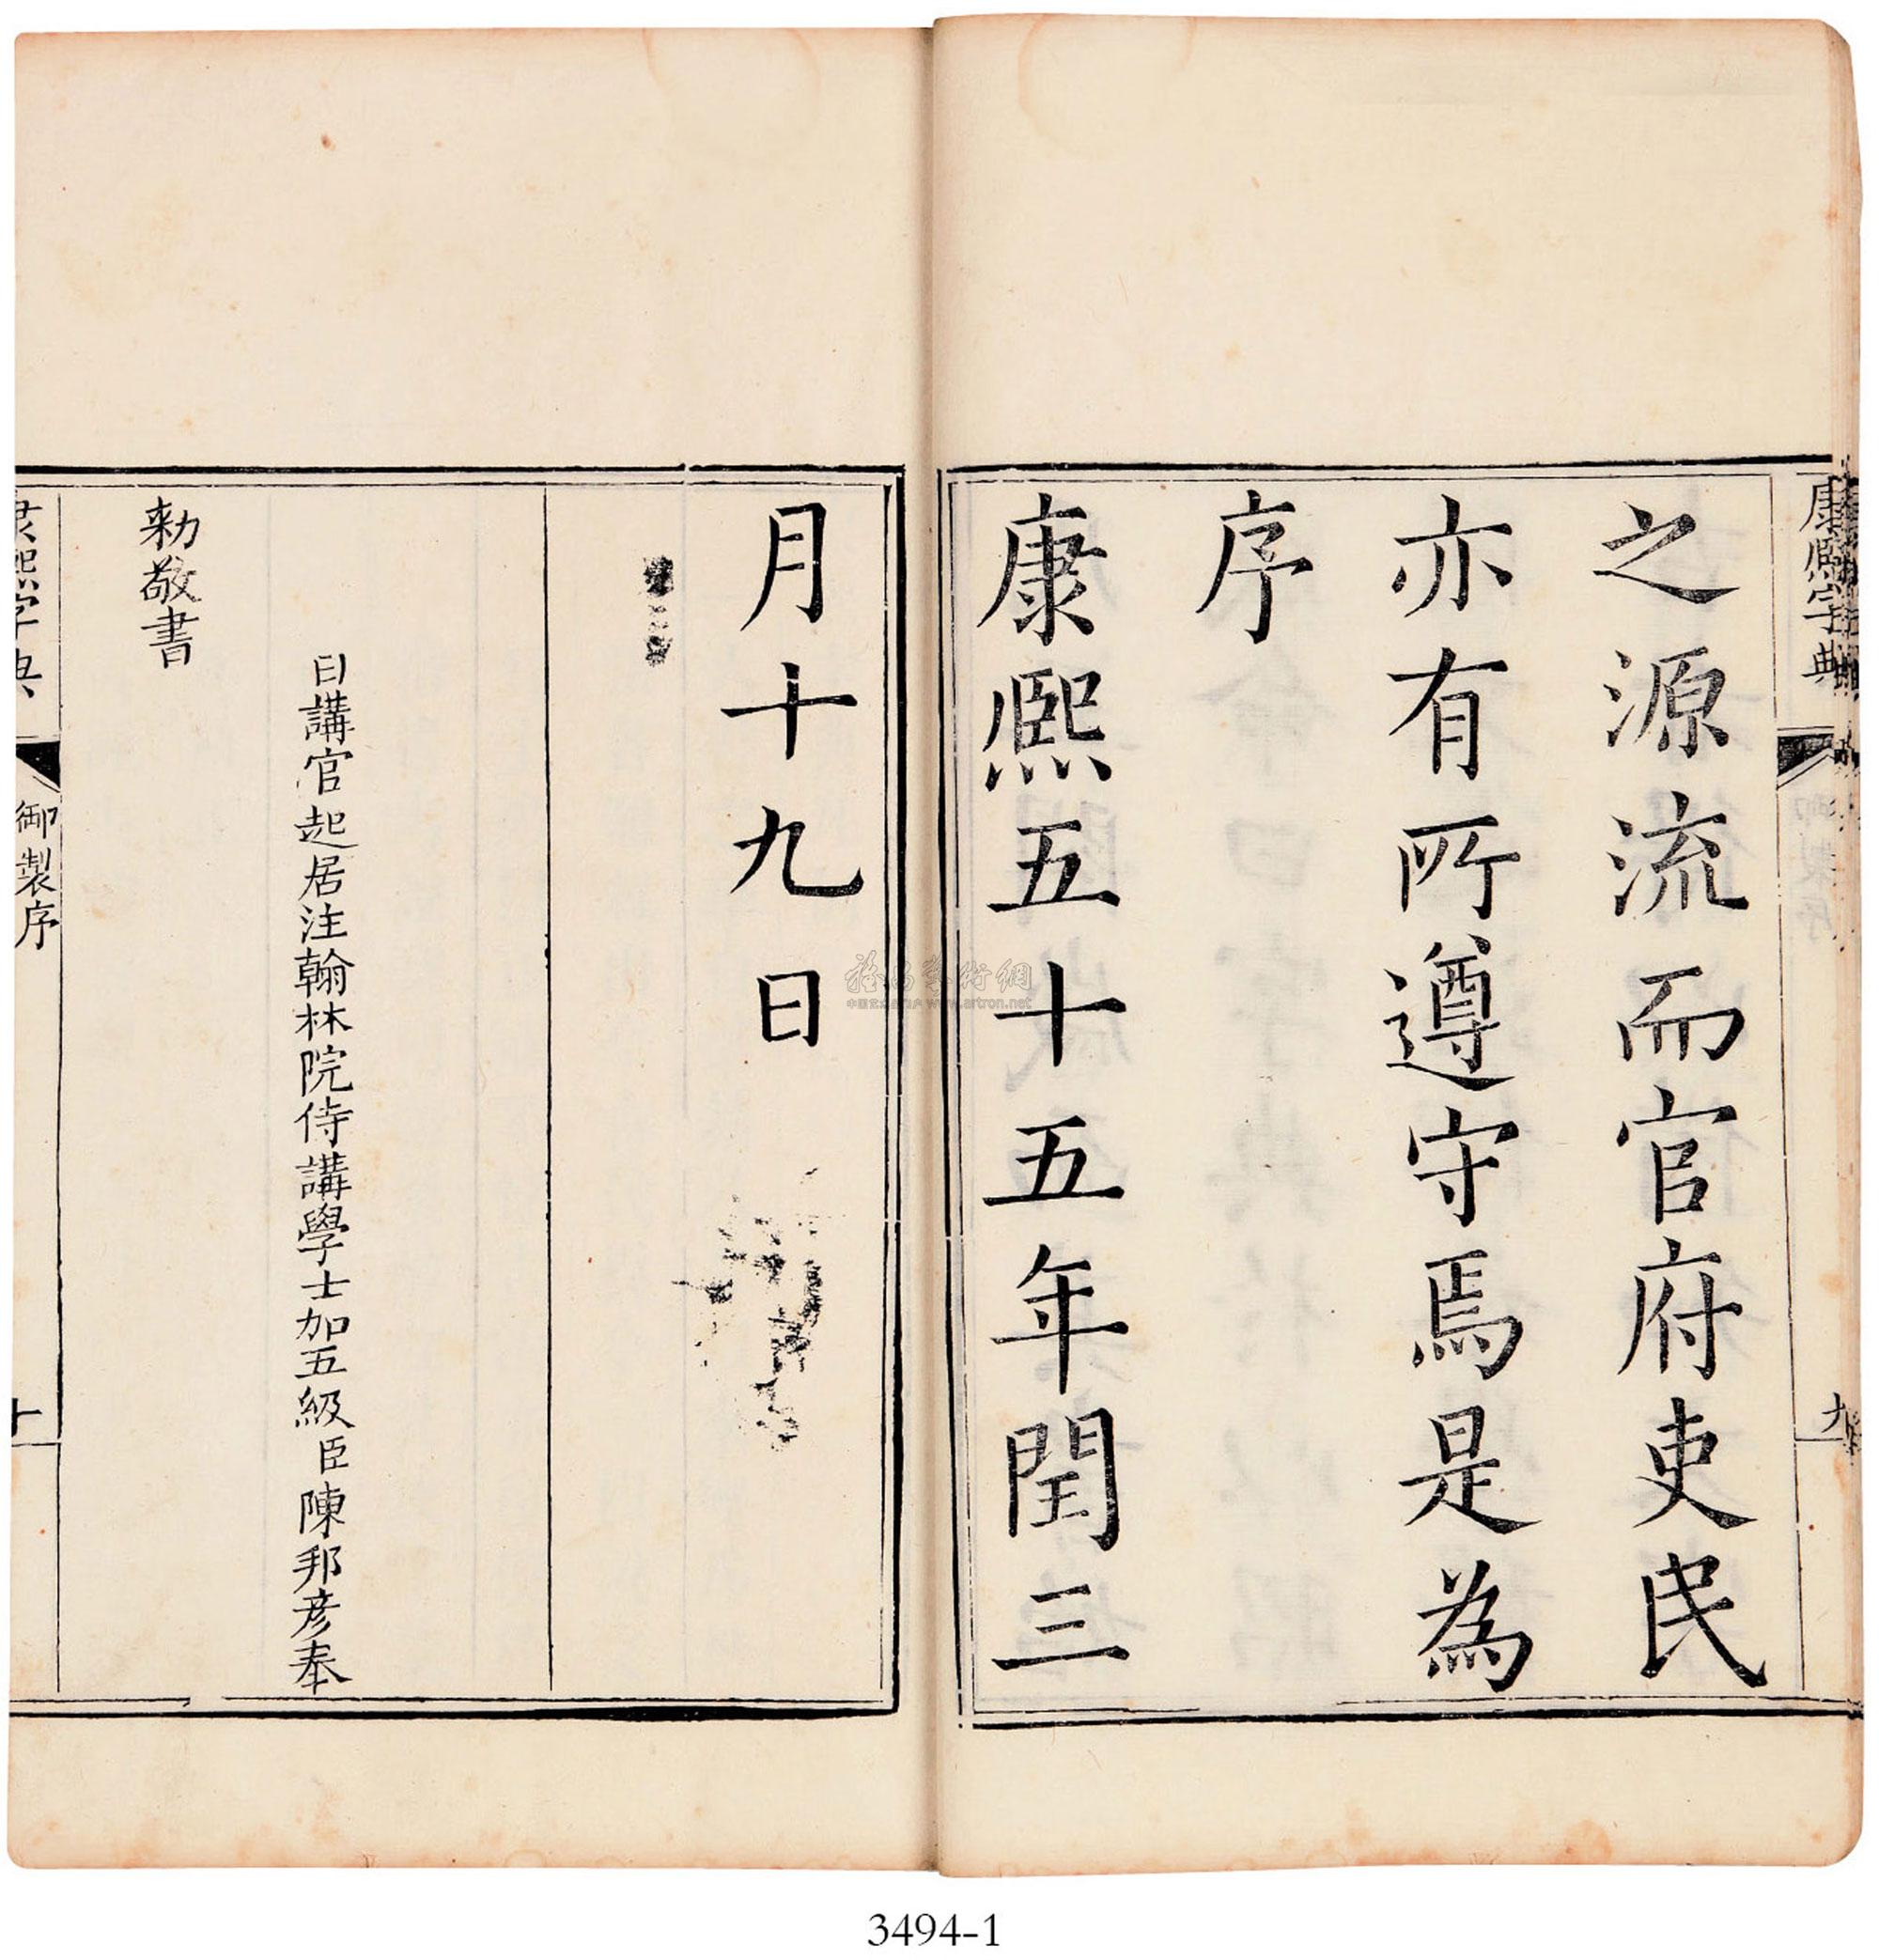 康熙字典
御製序
九
之源流而官府吏民
亦有所遵守焉是為
序
康熙五十五年閏三
月十九日
日講官起居注翰林院侍講學士加五級臣陳邦彥奉
勑敬書
康熙字典
御製序
十
雅昌藝術網
www.artron.net
3494-1